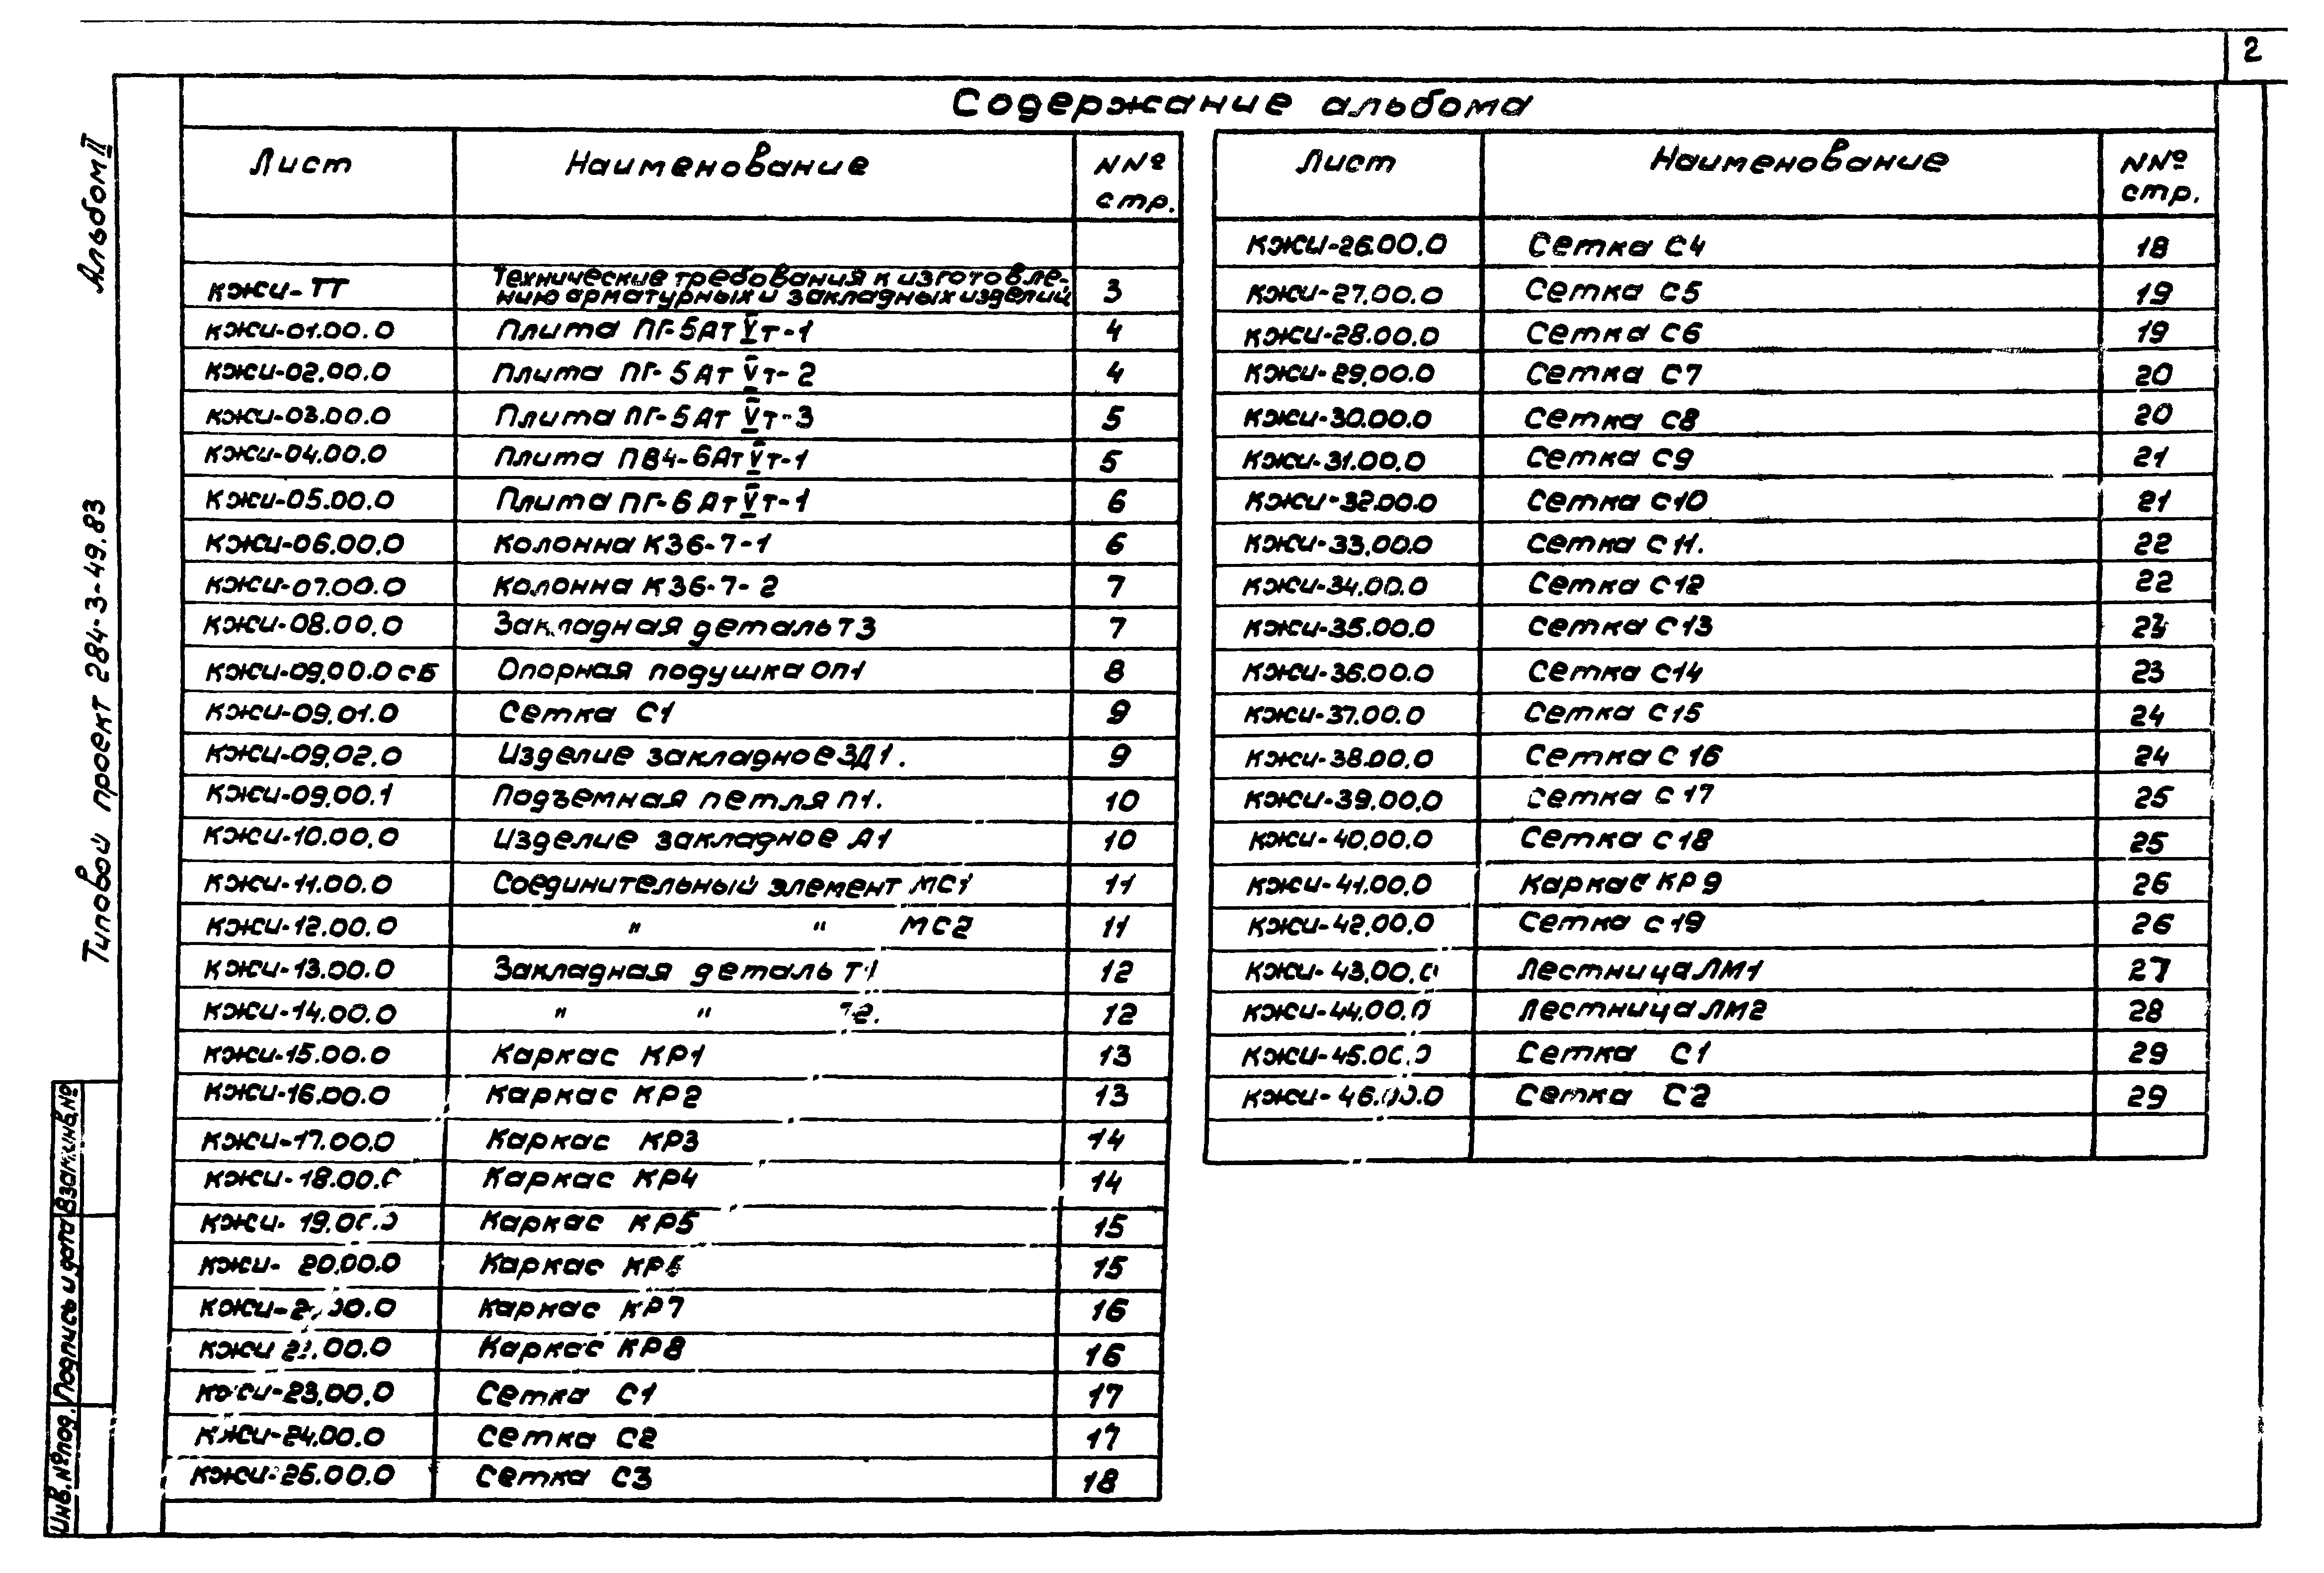 2
Содержание альбома
Альбом II
Типовой проект 284-3-49.83
Взам.инв.№
Подпись и дата
Инв.№под.
Лист Наименование NNº стр.
КЖИ-ТТ Технические требования к изготовле-
нию арматурных и закладных изделий 3
КЖИ-01.00.0 Плита ПГ-5АтVт-1 4
КЖИ-02.00.0 Плита ПГ-5АтVт-2 4
КЖИ-03.00.0 Плита ПГ-5АтVт-3 5
КЖИ-04.00.0 Плита ПВ4-6АтVт-1 5
КЖИ-05.00.0 Плита ПГ-6АтVт-1 6
КЖИ-06.00.0 Колонна К36-7-1 6
КЖИ-07.00.0 Колонна К36-7-2 7
КЖИ-08.00.0 Закладная деталь Т3 7
КЖИ-09.00.0 СБ Опорная подушка ОП1 8
КЖИ-09.01.0 Сетка С1 9
КЖИ-09.02.0 Изделие закладное ЗД1. 9
КЖИ-09.00.1 Подъемная петля П1. 10
КЖИ-10.00.0 Изделие закладное Д1 10
КЖИ-11.00.0 Соединительный элемент МС1 11
КЖИ-12.00.0 " " МС2 11
КЖИ-13.00.0 Закладная деталь Т1 12
КЖИ-14.00.0 " " Т2. 12
КЖИ-15.00.0 Каркас КР1 13
КЖИ-16.00.0 Каркас КР2 13
КЖИ-17.00.0 Каркас КР3 14
КЖИ-18.00.0 Каркас КР4 14
КЖИ-19.00.0 Каркас КР5 15
КЖИ-20.00.0 Каркас КР6 15
КЖИ-21.00.0 Каркас КР7 16
КЖИ 22.00.0 Каркас КР8 16
КЖИ-23.00.0 Сетка С1 17
КЖИ-24.00.0 Сетка С2 17
КЖИ-25.00.0 Сетка С3 18
Лист Наименование NNº стр.
КЖИ-26.00.0 Сетка С4 18
КЖИ-27.00.0 Сетка С5 19
КЖИ-28.00.0 Сетка С6 19
КЖИ-29.00.0 Сетка С7 20
КЖИ-30.00.0 Сетка С8 20
КЖИ-31.00.0 Сетка С9 21
КЖИ-32.00.0 Сетка С10 21
КЖИ-33.00.0 Сетка С11. 22
КЖИ-34.00.0 Сетка С12 22
КЖИ-35.00.0 Сетка С13 23
КЖИ-36.00.0 Сетка С14 23
КЖИ-37.00.0 Сетка С15 24
КЖИ-38.00.0 Сетка С16 24
КЖИ-39.00.0 Сетка С17 25
КЖИ-40.00.0 Сетка С18 25
КЖИ-41.00.0 Каркас КР9 26
КЖИ-42.00.0 Сетка С19 26
КЖИ-43.00.0 Лестница ЛМ1 27
КЖИ-44.00.0 Лестница ЛМ2 28
КЖИ-45.00.0 Сетка С1 29
КЖИ-46.00.0 Сетка С2 29